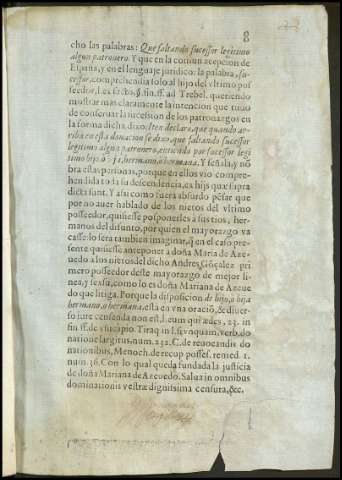 8
cho las palabras: Que faltando sucessor legitimo
algun patronero. Y que en la comun acepcion de
España, y en el lenguaje juridico, la palabra, su-
cessor, comprehendia solo al hijo del vltimo pos-
seedor, l. ex facto, §. fin. ff. ad Trebel. queriendo
mostrar mas claramente la intencion que tuuo
de conseruar la sucession de los patronazgos en
la forma dicha, dixo: Iten declaro, que quando ar-
riba en esta donacion se dixo, que faltando sucessor
legitimo algun patronero, entiendo por sucessor legi
timo hijo, ò hija, hermano, ò hermana. Y señala, y nõ
bra estas personas, porque en ellos vio comprehen-
dida toda su descendencia, ex hijs quæ supra
dicta sunt. Y assi como fuera absurdo pẽsar que
por no auer hablado de los nietos del vltimo
posseedor, quisiesse posponerles à sus tios, her-
manos del difunto, por quien el mayorazgo va
casse: lo sera tambien imaginar, q̃ en el caso pre-
sente quisiesse anteponer a doña Maria de Aze-
uedo a los nietos del dicho Andres Gõçalez pri
mero posseedor deste mayorazgo de mejor li-
nea, y sexso, como lo es doña Mariana de Azeue
do que litiga. Porque la disposicion de hijo, ò hija
hermano, ò hermana, esta en vna oraciõ, & diuer-
so iure censenda non est, l. eum qui ædes, 23. in
fin. ff. de vsucapio. Tiraq. in l. si vnquam, verb. do
natione largitus, num. 232. C. de reuocandis do
nationibus, Menoch. de recup. posses. remed. 1.
num. 36. Con lo qual queda fundada la justicia
de doña Mariana de Azeuedo. Salua in omnibus
dominationis vestræ dignissima censura, &c.